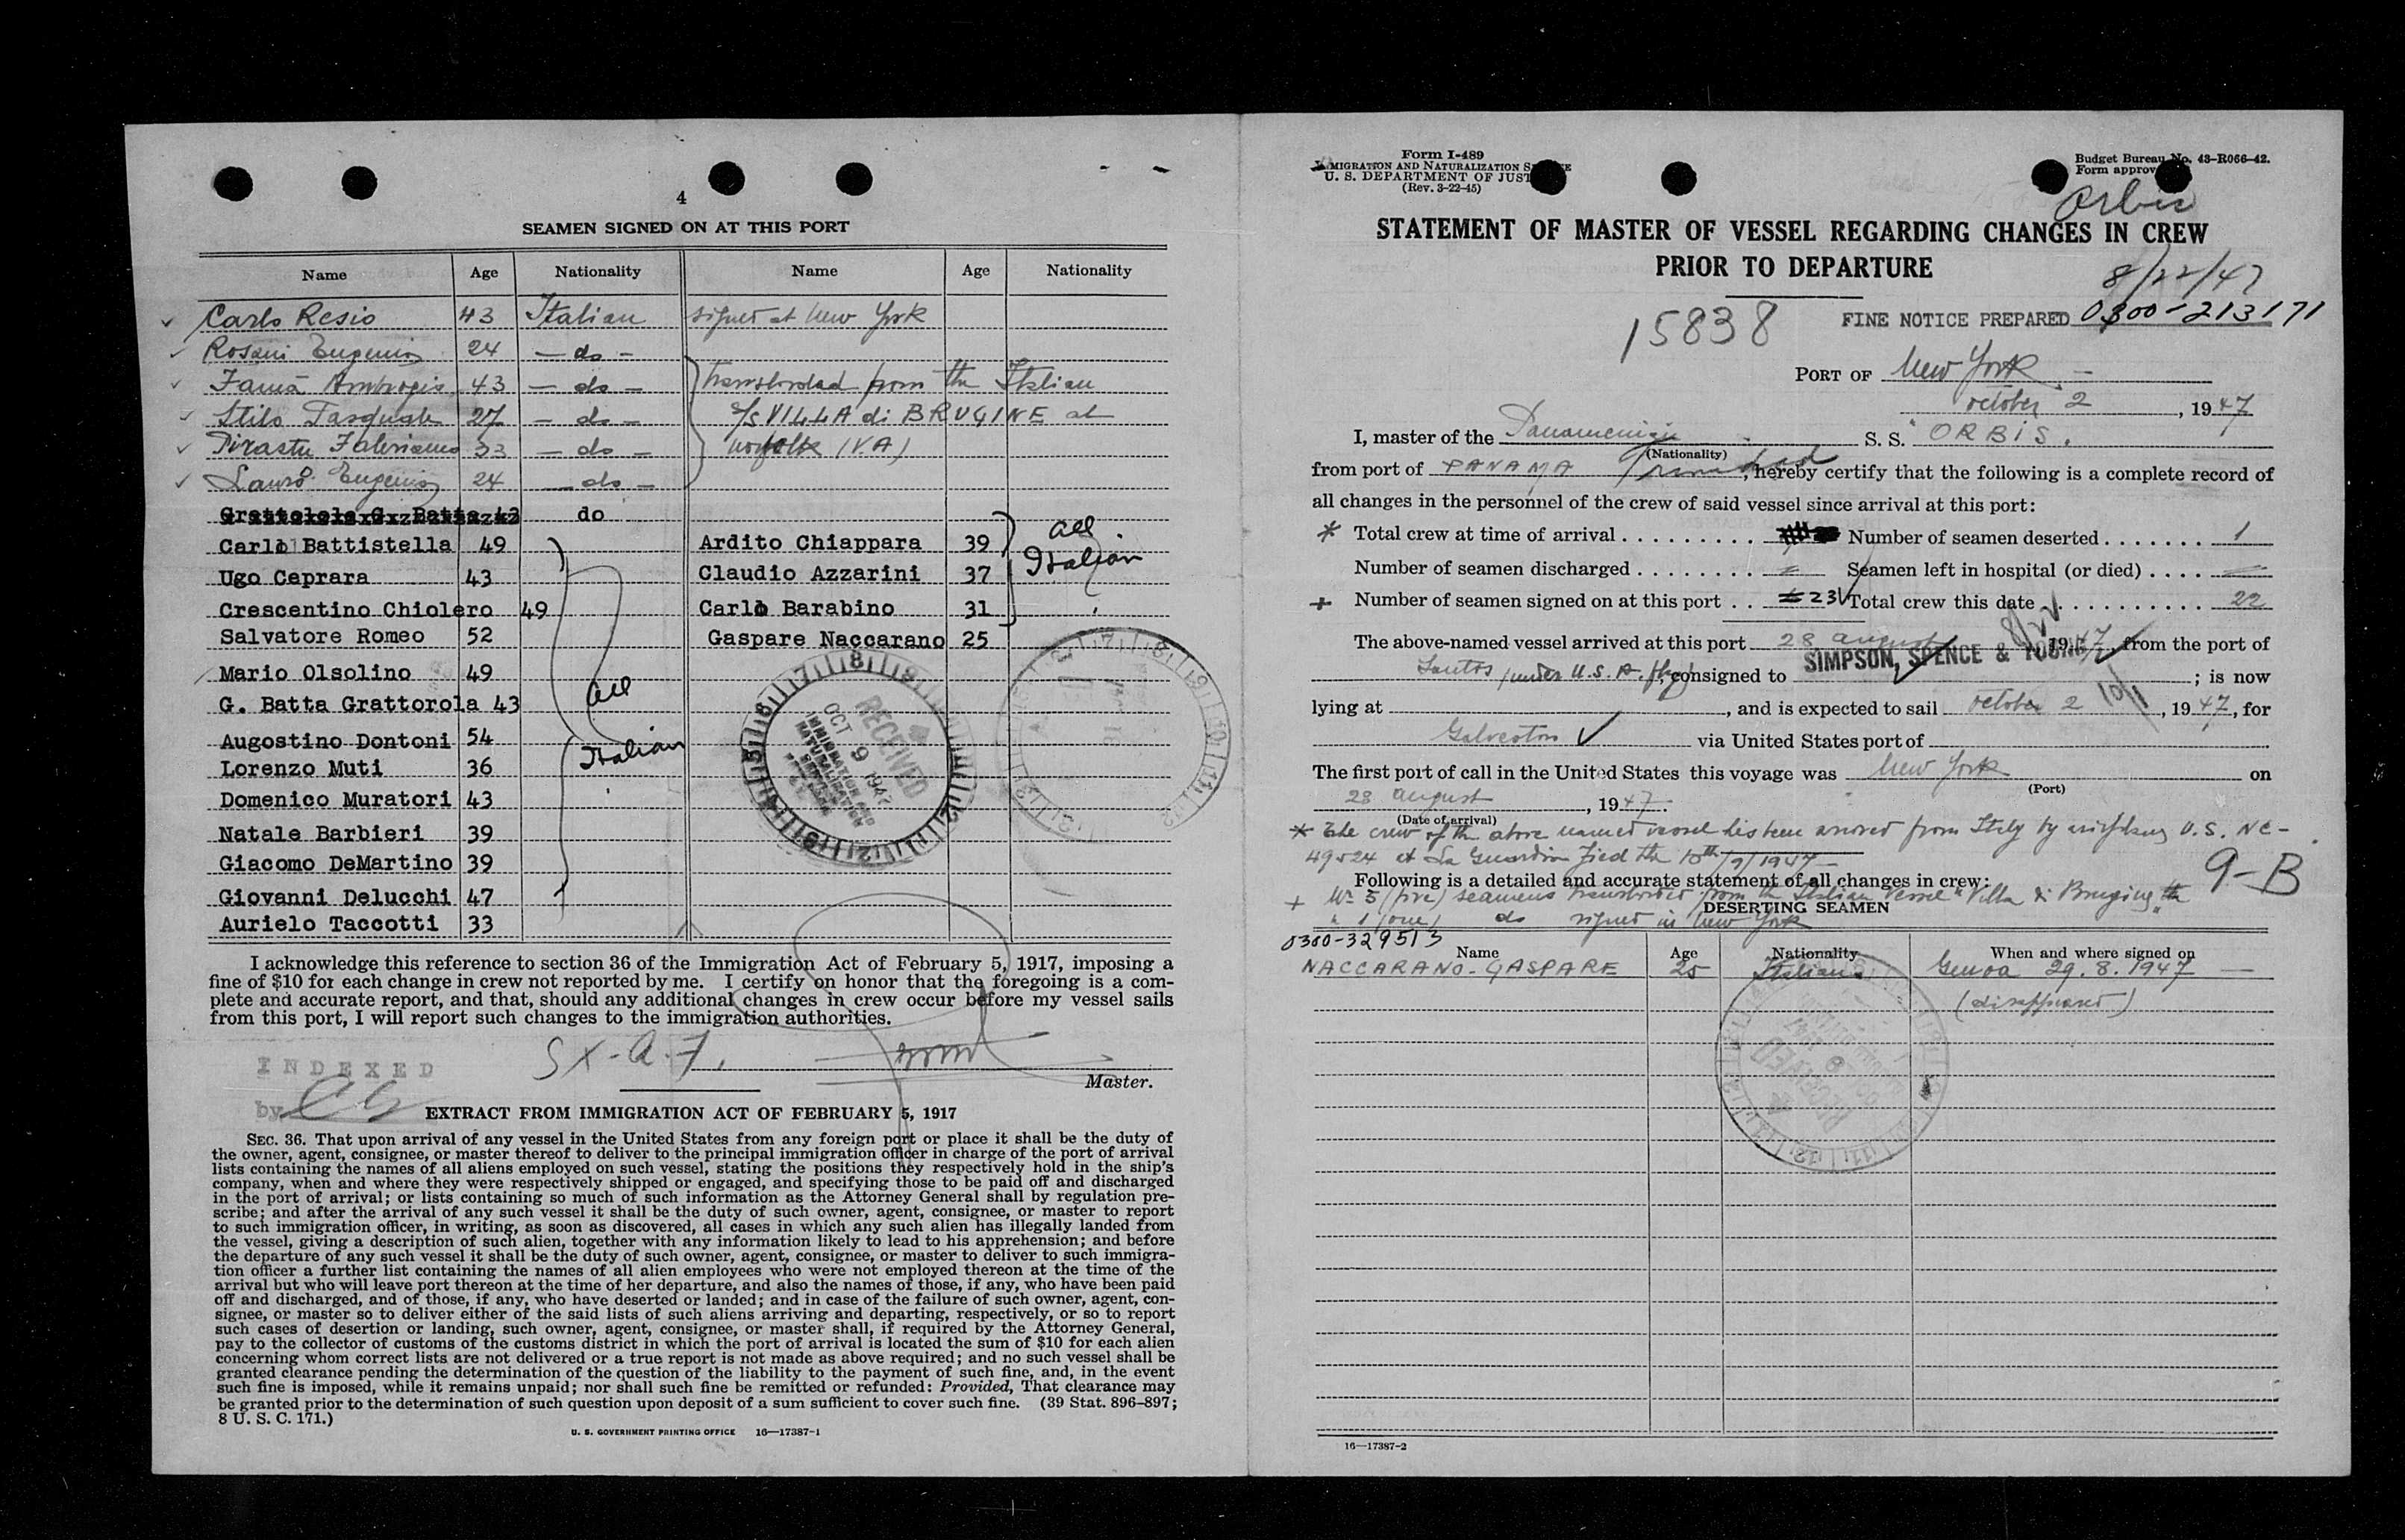 4
SEAMEN SIGNED ON AT THIS PORT
Name Age Nationality Name Age Nationality
Carlo Resio 43 Italian signed at New York
Rosani Eugenio 24 — do —
Ambrogio 43 — do — from the Italian
Stilo Pasquale 27 — do — s/s VILLA di BRUGINE at
Pirastu 33 — do — Norfolk (V.A)
Lauro Eugenio 24 — do —
Grattolola G. Batta 43 do
Carlo Battistella 49 Ardito Chiappara 39 all
Ugo Caprara 43 Claudio Azzarini 37 Italian
Crescentino Chiolero 49 Carlo Barabino 31
Salvatore Romeo 52 Gaspare Naccarano 25
Mario Olsolino 49
G. Batta Grattorola 43 all
Augostino Dontoni 54
Lorenzo Muti 36 Italian
Domenico Muratori 43
Natale Barbieri 39
Giacomo DeMartino 39
Giovanni Delucchi 47
Aurielo Taccotti 33
RECEIVED
OCT 9 194
IMMIGRATION AND
NATURALIZATION
SERVICE
I acknowledge this reference to section 36 of the Immigration Act of February 5, 1917, imposing a
fine of $10 for each change in crew not reported by me. I certify on honor that the foregoing is a com-
plete and accurate report, and that, should any additional changes in crew occur before my vessel sails
from this port, I will report such changes to the immigration authorities.
SX-a.7.
Master.
INDEXED
by
EXTRACT FROM IMMIGRATION ACT OF FEBRUARY 5, 1917
SEC. 36. That upon arrival of any vessel in the United States from any foreign port or place it shall be the duty of
the owner, agent, consignee, or master thereof to deliver to the principal immigration officer in charge of the port of arrival
lists containing the names of all aliens employed on such vessel, stating the positions they respectively hold in the ship's
company, when and where they were respectively shipped or engaged, and specifying those to be paid off and discharged
in the port of arrival; or lists containing so much of such information as the Attorney General shall by regulation pre-
scribe; and after the arrival of any such vessel it shall be the duty of such owner, agent, consignee, or master to report
to such immigration officer, in writing, as soon as discovered, all cases in which any such alien has illegally landed from
the vessel, giving a description of such alien, together with any information likely to lead to his apprehension; and before
the departure of any such vessel it shall be the duty of such owner, agent, consignee, or master to deliver to such immigra-
tion officer a further list containing the names of all alien employees who were not employed thereon at the time of the
arrival but who will leave port thereon at the time of her departure, and also the names of those, if any, who have been paid
off and discharged, and of those, if any, who have deserted or landed; and in case of the failure of such owner, agent, con-
signee, or master so to deliver either of the said lists of such aliens arriving and departing, respectively, or so to report
such cases of desertion or landing, such owner, agent, consignee, or master shall, if required by the Attorney General,
pay to the collector of customs of the customs district in which the port of arrival is located the sum of $10 for each alien
concerning whom correct lists are not delivered or a true report is not made as above required; and no such vessel shall be
granted clearance pending the determination of the question of the liability to the payment of such fine, and, in the event
such fine is imposed, while it remains unpaid; nor shall such fine be remitted or refunded: Provided, That clearance may
be granted prior to the determination of such question upon deposit of a sum sufficient to cover such fine. (39 Stat. 896–897;
8 U. S. C. 171.)
U. S. GOVERNMENT PRINTING OFFICE 16—17387-1
Form I-489
IMMIGRATION AND NATURALIZATION
U. S. DEPARTMENT OF JUST
(Rev. 3-22-45)
Budget Bureau No. 43-R066-42.
Form approv
Orbis
STATEMENT OF MASTER OF VESSEL REGARDING CHANGES IN CREW
PRIOR TO DEPARTURE
8/22/47
15838 FINE NOTICE PREPARED 0300-213171
PORT OF New York
October 2, 1947
I, master of the Panamenian S. S. "ORBIS.
(Nationality)
from port of PANAMA Trinidad, hereby certify that the following is a complete record of
all changes in the personnel of the crew of said vessel since arrival at this port:
* Total crew at time of arrival Number of seamen deserted 1
Number of seamen discharged Seamen left in hospital (or died)
+ Number of seamen signed on at this port 23 Total crew this date 22
The above-named vessel arrived at this port 28 august, 1947, from the port of
Santos, under U.S.A. flag, consigned to SIMPSON, SPENCE & YOUNG; is now
lying at , and is expected to sail October 2 10/1, 1947, for
Galveston via United States port of
The first port of call in the United States this voyage was New York on
(Port)
28 august, 1947.
(Date of arrival)
* The crew of the above named vessel has been arrived from Italy by airplane U.S. NC-
49524 at La Guardia Field the 10th/9/1947 —
9-B
Following is a detailed and accurate statement of all changes in crew:
+ Nr 5 (five) seamens from the Italian Vessel "Villa di Brugine"
" 1 (one) do signed in New York
DESERTING SEAMEN
0300-329513
Name Age Nationality When and where signed on
NACCARANO-GASPARE 25 Italian Genoa 29.8.1947 —
(disappeared)
RECEIVED
16—17387-2